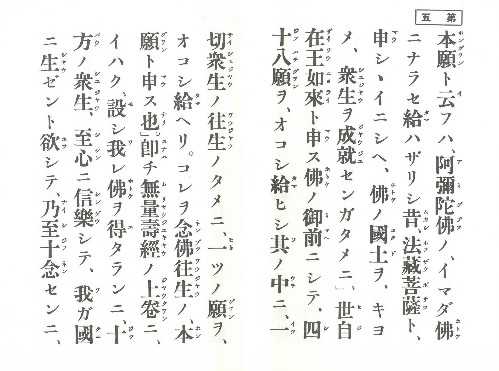 第五
本願ト云フハ、阿彌陀佛ノ、イマダ佛
ニナラセ給ハザリシ昔、法藏菩薩ト、
申シヽイニシヘ、佛ノ國土ヲ、キヨ
メ、衆生ヲ成就センガタメニ、世自
在王如來ト申ス佛ノ御前ニシテ、四
十八願ヲ、オコシ給ヒシ其ノ中ニ、一
切衆生ノ往生ノタメニ、一ツノ願ヲ、
オコシ給ヘリ。コレヲ念佛往生ノ本
願ト申ス也。卽チ無量壽經ノ上卷ニ、
イハク、設シ我レ佛ヲ得タランニ、十
方ノ衆生、至心ニ信樂シテ、我ガ國
ニ生ゼント欲シテ、乃至十念センニ、